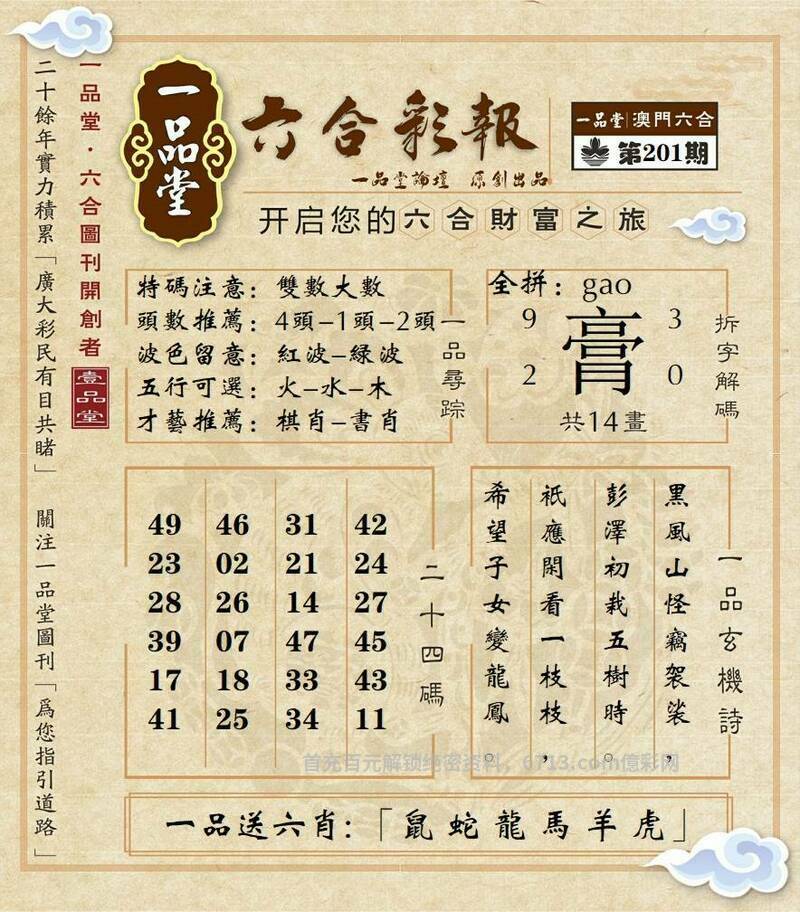 二十餘年實力積累「廣大彩民有目共睹」 關注一品堂圖刊「爲您指引道路」
一品堂·六合圖刊開創者
壹品堂
一品堂
六合彩報
一品堂論壇 原創出品
一品堂|澳門六合
第201期
开启您的六合財富之旅
特碼注意：雙數大數
頭數推薦：4頭-1頭-2頭
波色留意：紅波-緑波
五行可選：火-水-木
才藝推薦：棋肖-書肖
一品尋踪
全拼：gao
9 3
膏
2 0
共14畫
拆字解碼
49 46 31 42
23 02 21 24
28 26 14 27
39 07 47 45
17 18 33 43
41 25 34 11
二十四碼
一品玄機詩
黑風山怪竊袈裟，
彭澤初栽五樹時。
祇應閑看一枝枝，
希望子女變龍鳳。
首充百元解锁绝密资料，6713.com億彩网
一品送六肖：「鼠蛇龍馬羊虎」